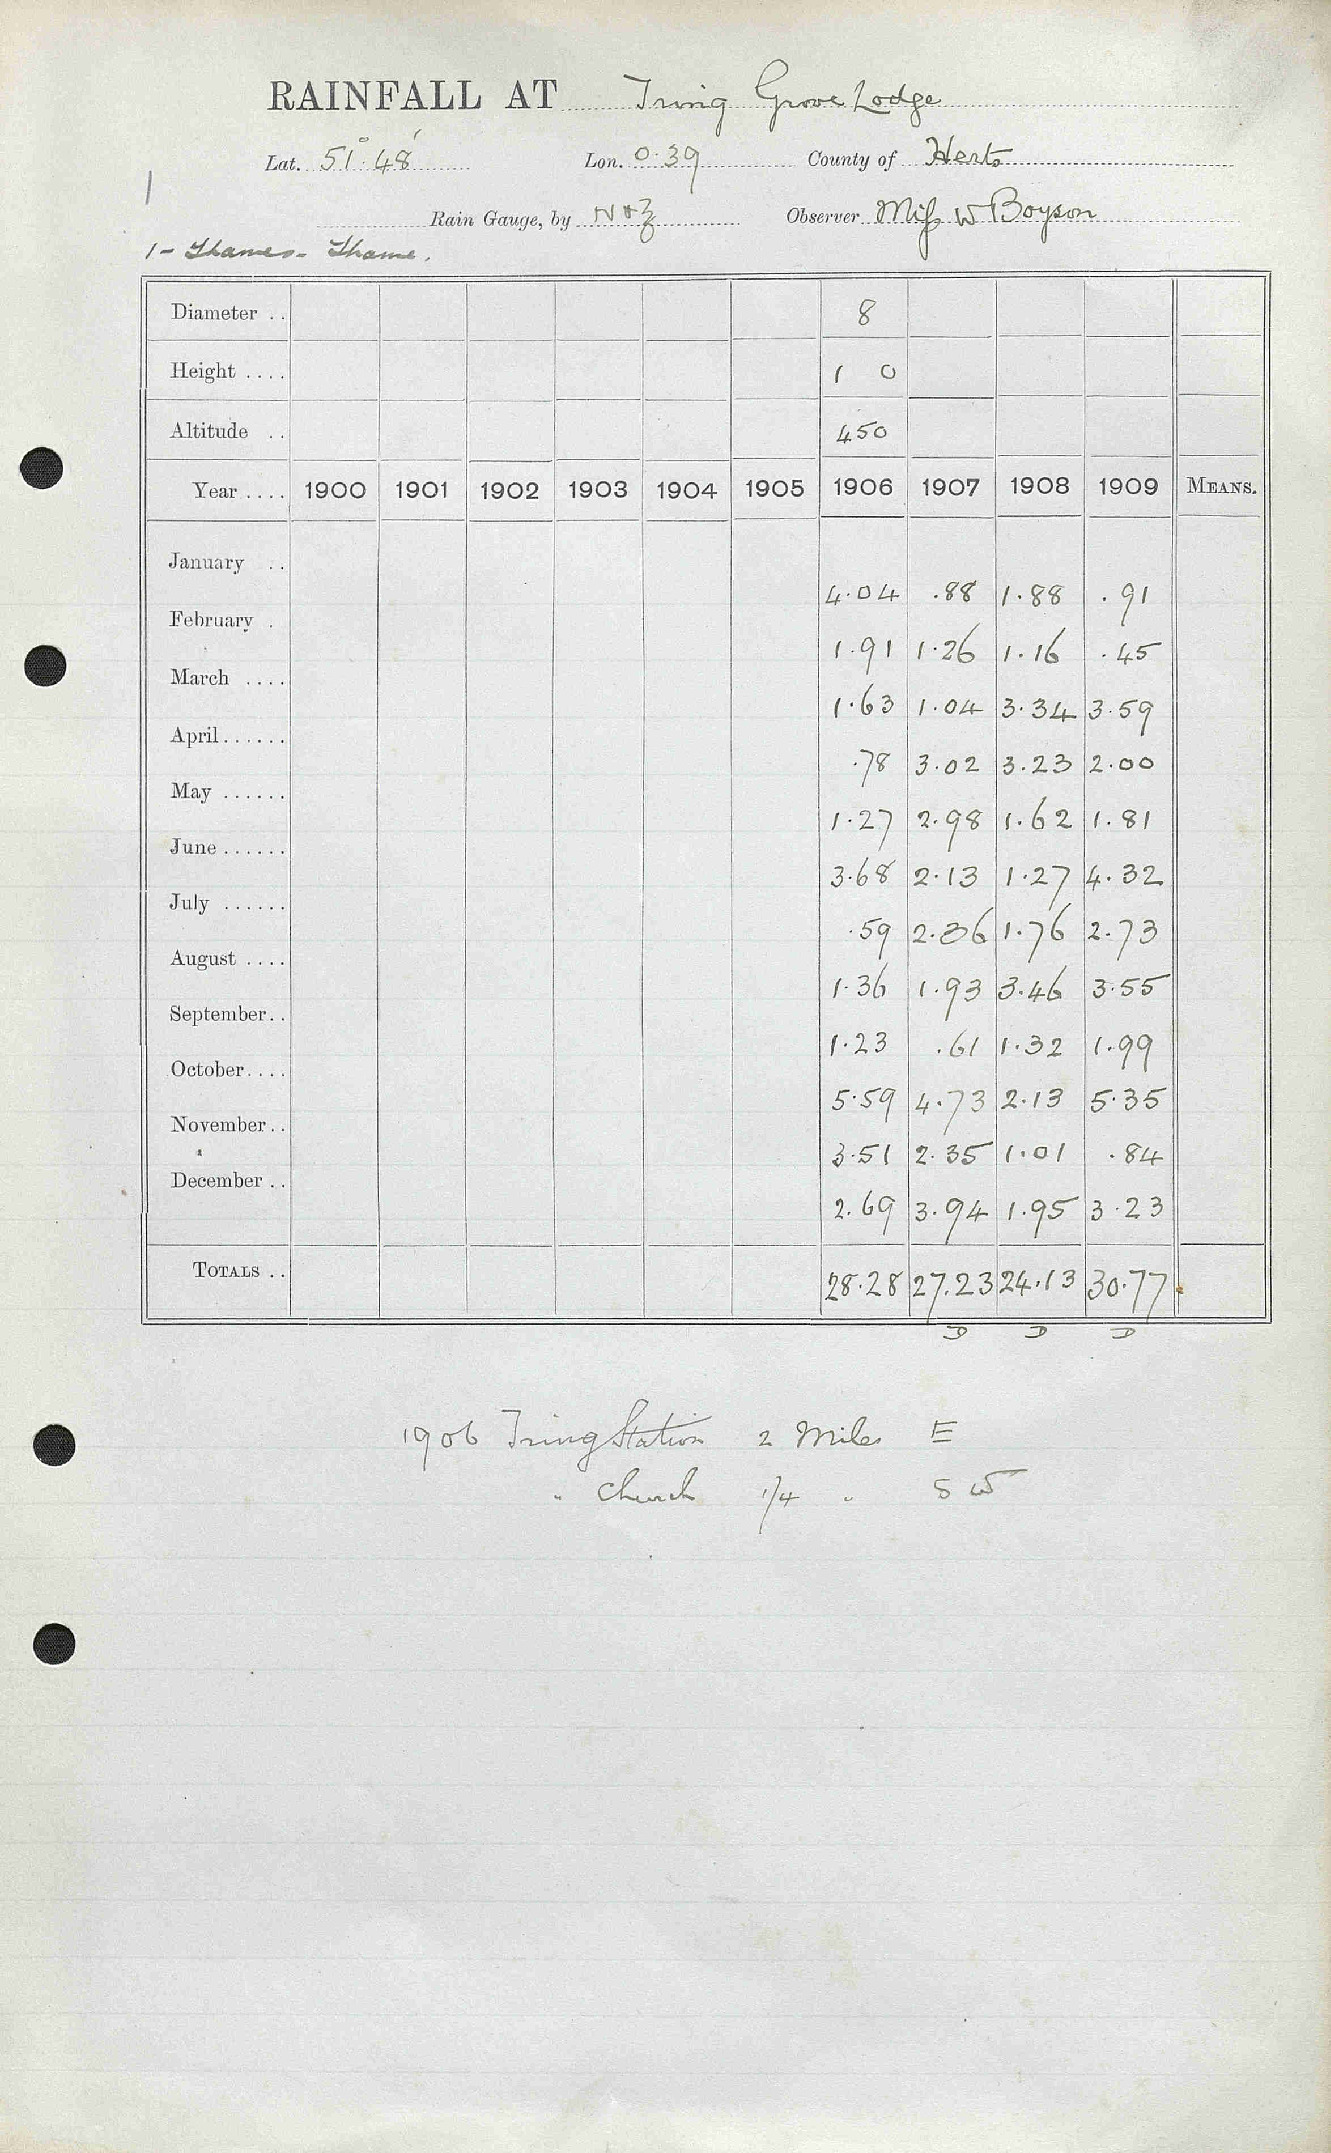 RAINFALL AT Tring Grove Lodge
Lat. 51° 48' Lon. 0·39 County of Herts
1
Rain Gauge, by N & Z Observer Miss W Boyson
1 - Thames - Thame.
Diameter .. 8
Height .... 1 0
Altitude .. 450
Year .... 1900 1901 1902 1903 1904 1905 1906 1907 1908 1909 MEANS.
January .. 4.04 .88 1.88 .91
February . 1.91 1.26 1.16 .45
March .... 1.63 1.04 3.34 3.59
April ...... .78 3.02 3.23 2.00
May ...... 1.27 2.98 1.62 1.81
June ...... 3.68 2.13 1.27 4.32
July ...... .59 2.36 1.76 2.73
August .... 1.36 1.93 3.46 3.55
September.. 1.23 .61 1.32 1.99
October.... 5.59 4.73 2.13 5.35
November.. 3.51 2.35 1.01 .84
December .. 2.69 3.94 1.95 3.23
TOTALS .. 28.28 27.23 24.13 30.77
D D D
1906 Tring Station 2 Miles E
" Church 1/4 " SW